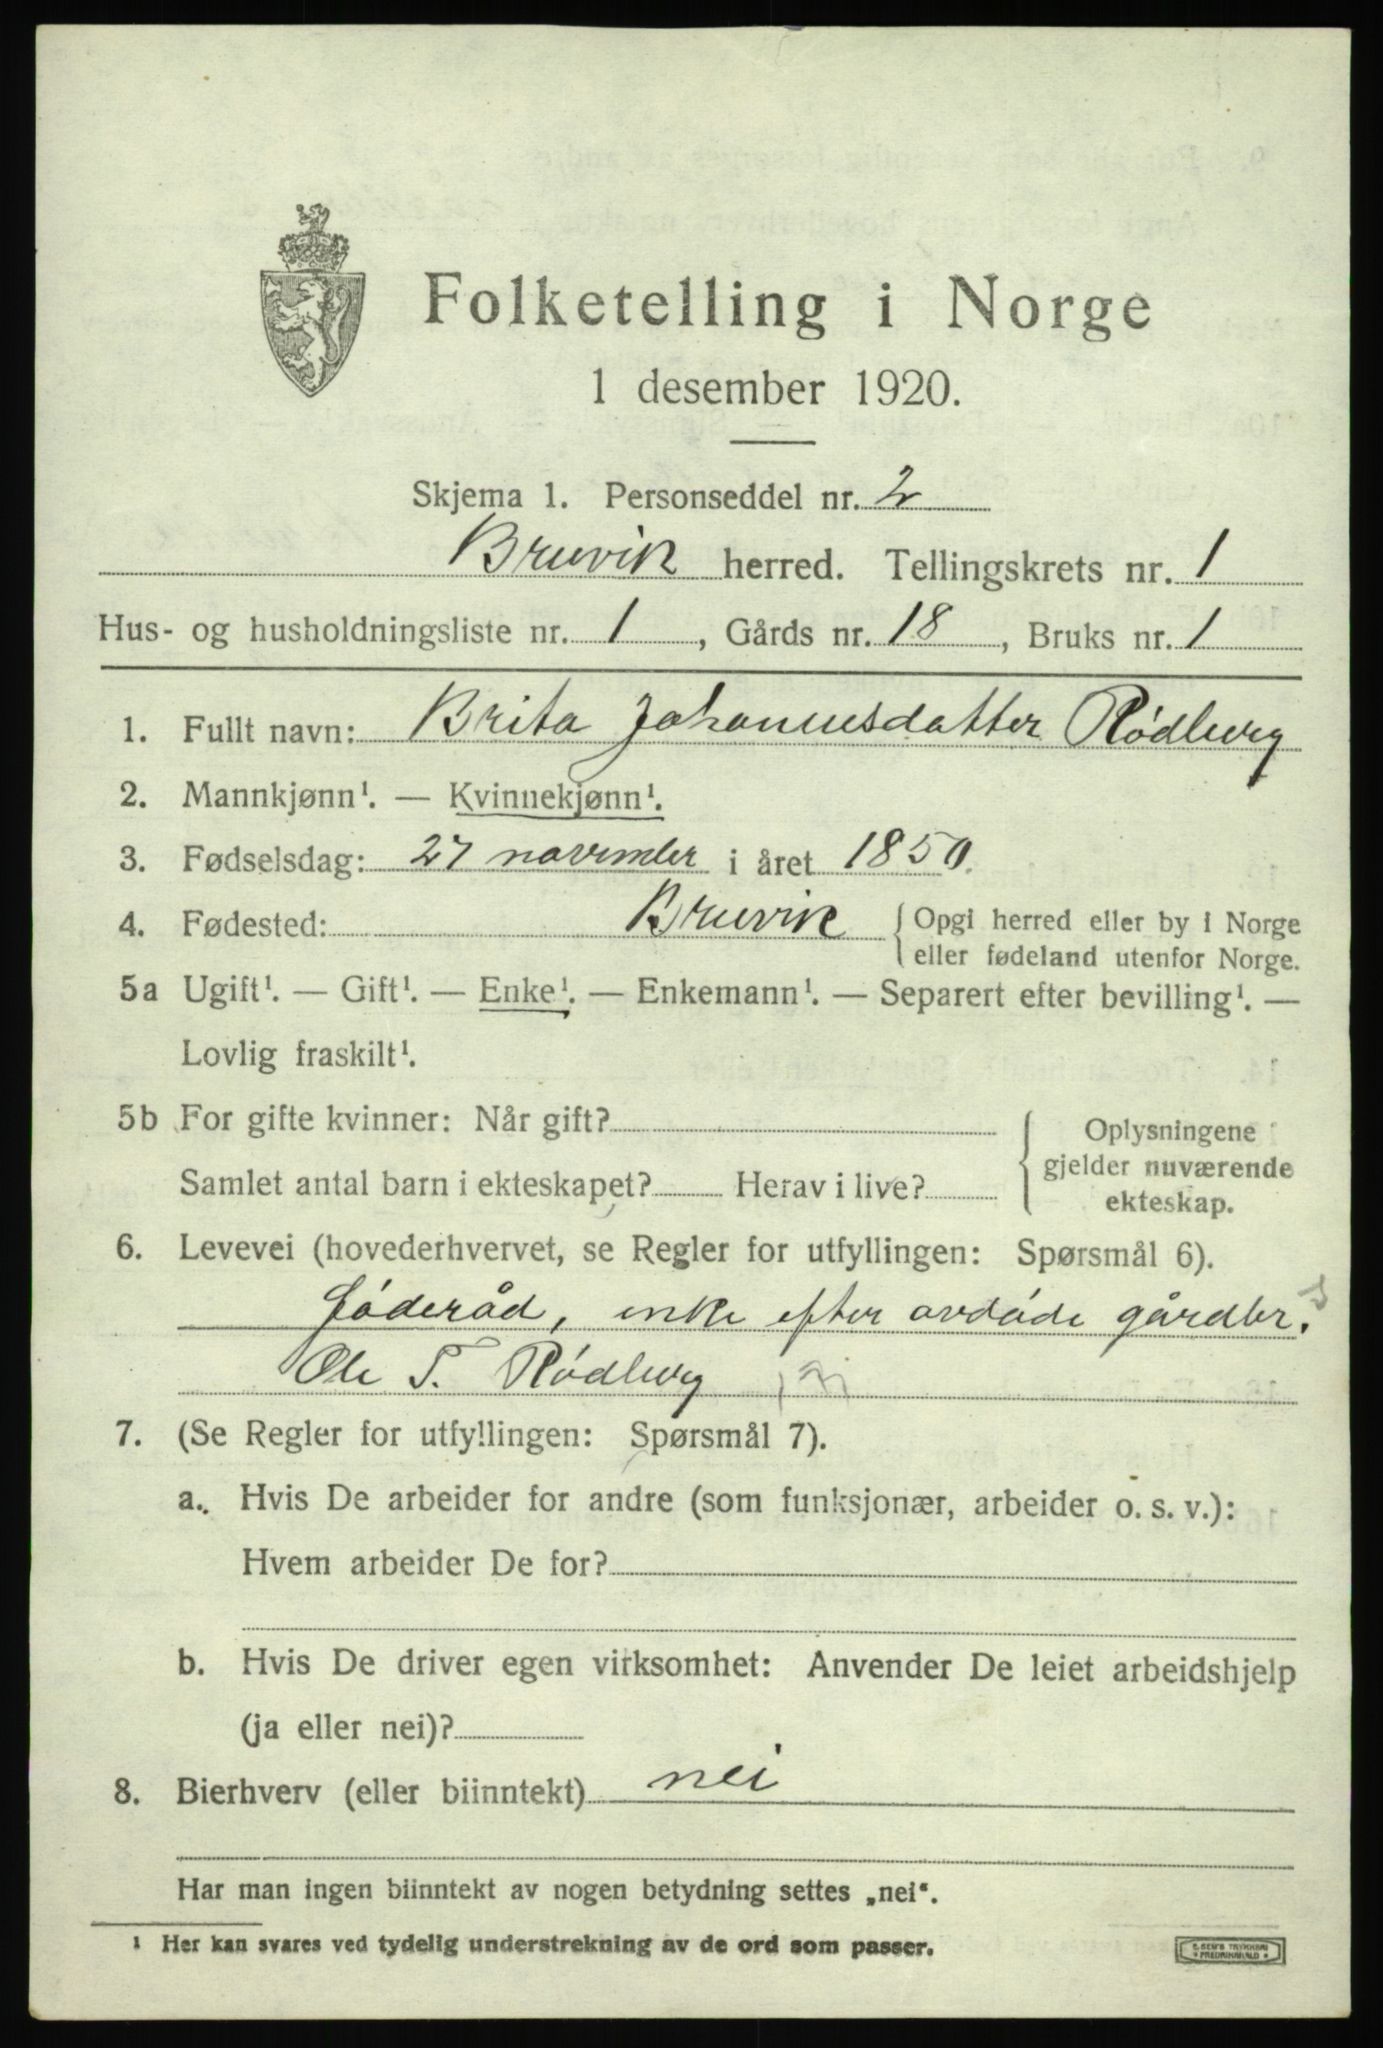 Folketelling i Norge
1 desember 1920.
Skjema 1. Personseddel nr. 2
Bruvik herred. Tellingskrets nr. 1
Hus- og husholdningsliste nr. 1, Gårds nr. 18, Bruks nr. 1
1. Fullt navn: Brita Johannesdatter Rødberg
2. Mannkjønn¹. — Kvinnekjønn¹.
3. Fødselsdag: 27 november i året 1850.
4. Fødested: Bruvik { Opgi herred eller by i Norge
eller fødeland utenfor Norge.
5a Ugift¹. — Gift¹. — Enke¹. — Enkemann¹. — Separert efter bevilling¹. —
Lovlig fraskilt¹.
5b For gifte kvinner: Når gift?
Samlet antal barn i ekteskapet? Herav i live?
Oplysningene
gjelder nuværende
ekteskap.
6. Levevei (hovederhvervet, se Regler for utfyllingen: Spørsmål 6).
föderåd, enke efter avdøde gårdbr.
Ole T. Rødberg
7. (Se Regler for utfyllingen: Spørsmål 7).
a. Hvis De arbeider for andre (som funksjonær, arbeider o. s. v.):
Hvem arbeider De for?
b. Hvis De driver egen virksomhet: Anvender De leiet arbeidshjelp
(ja eller nei)?
8. Bierhverv (eller biinntekt) nei
Har man ingen biinntekt av nogen betydning settes „nei“.
¹ Her kan svares ved tydelig understrekning av de ord som passer.